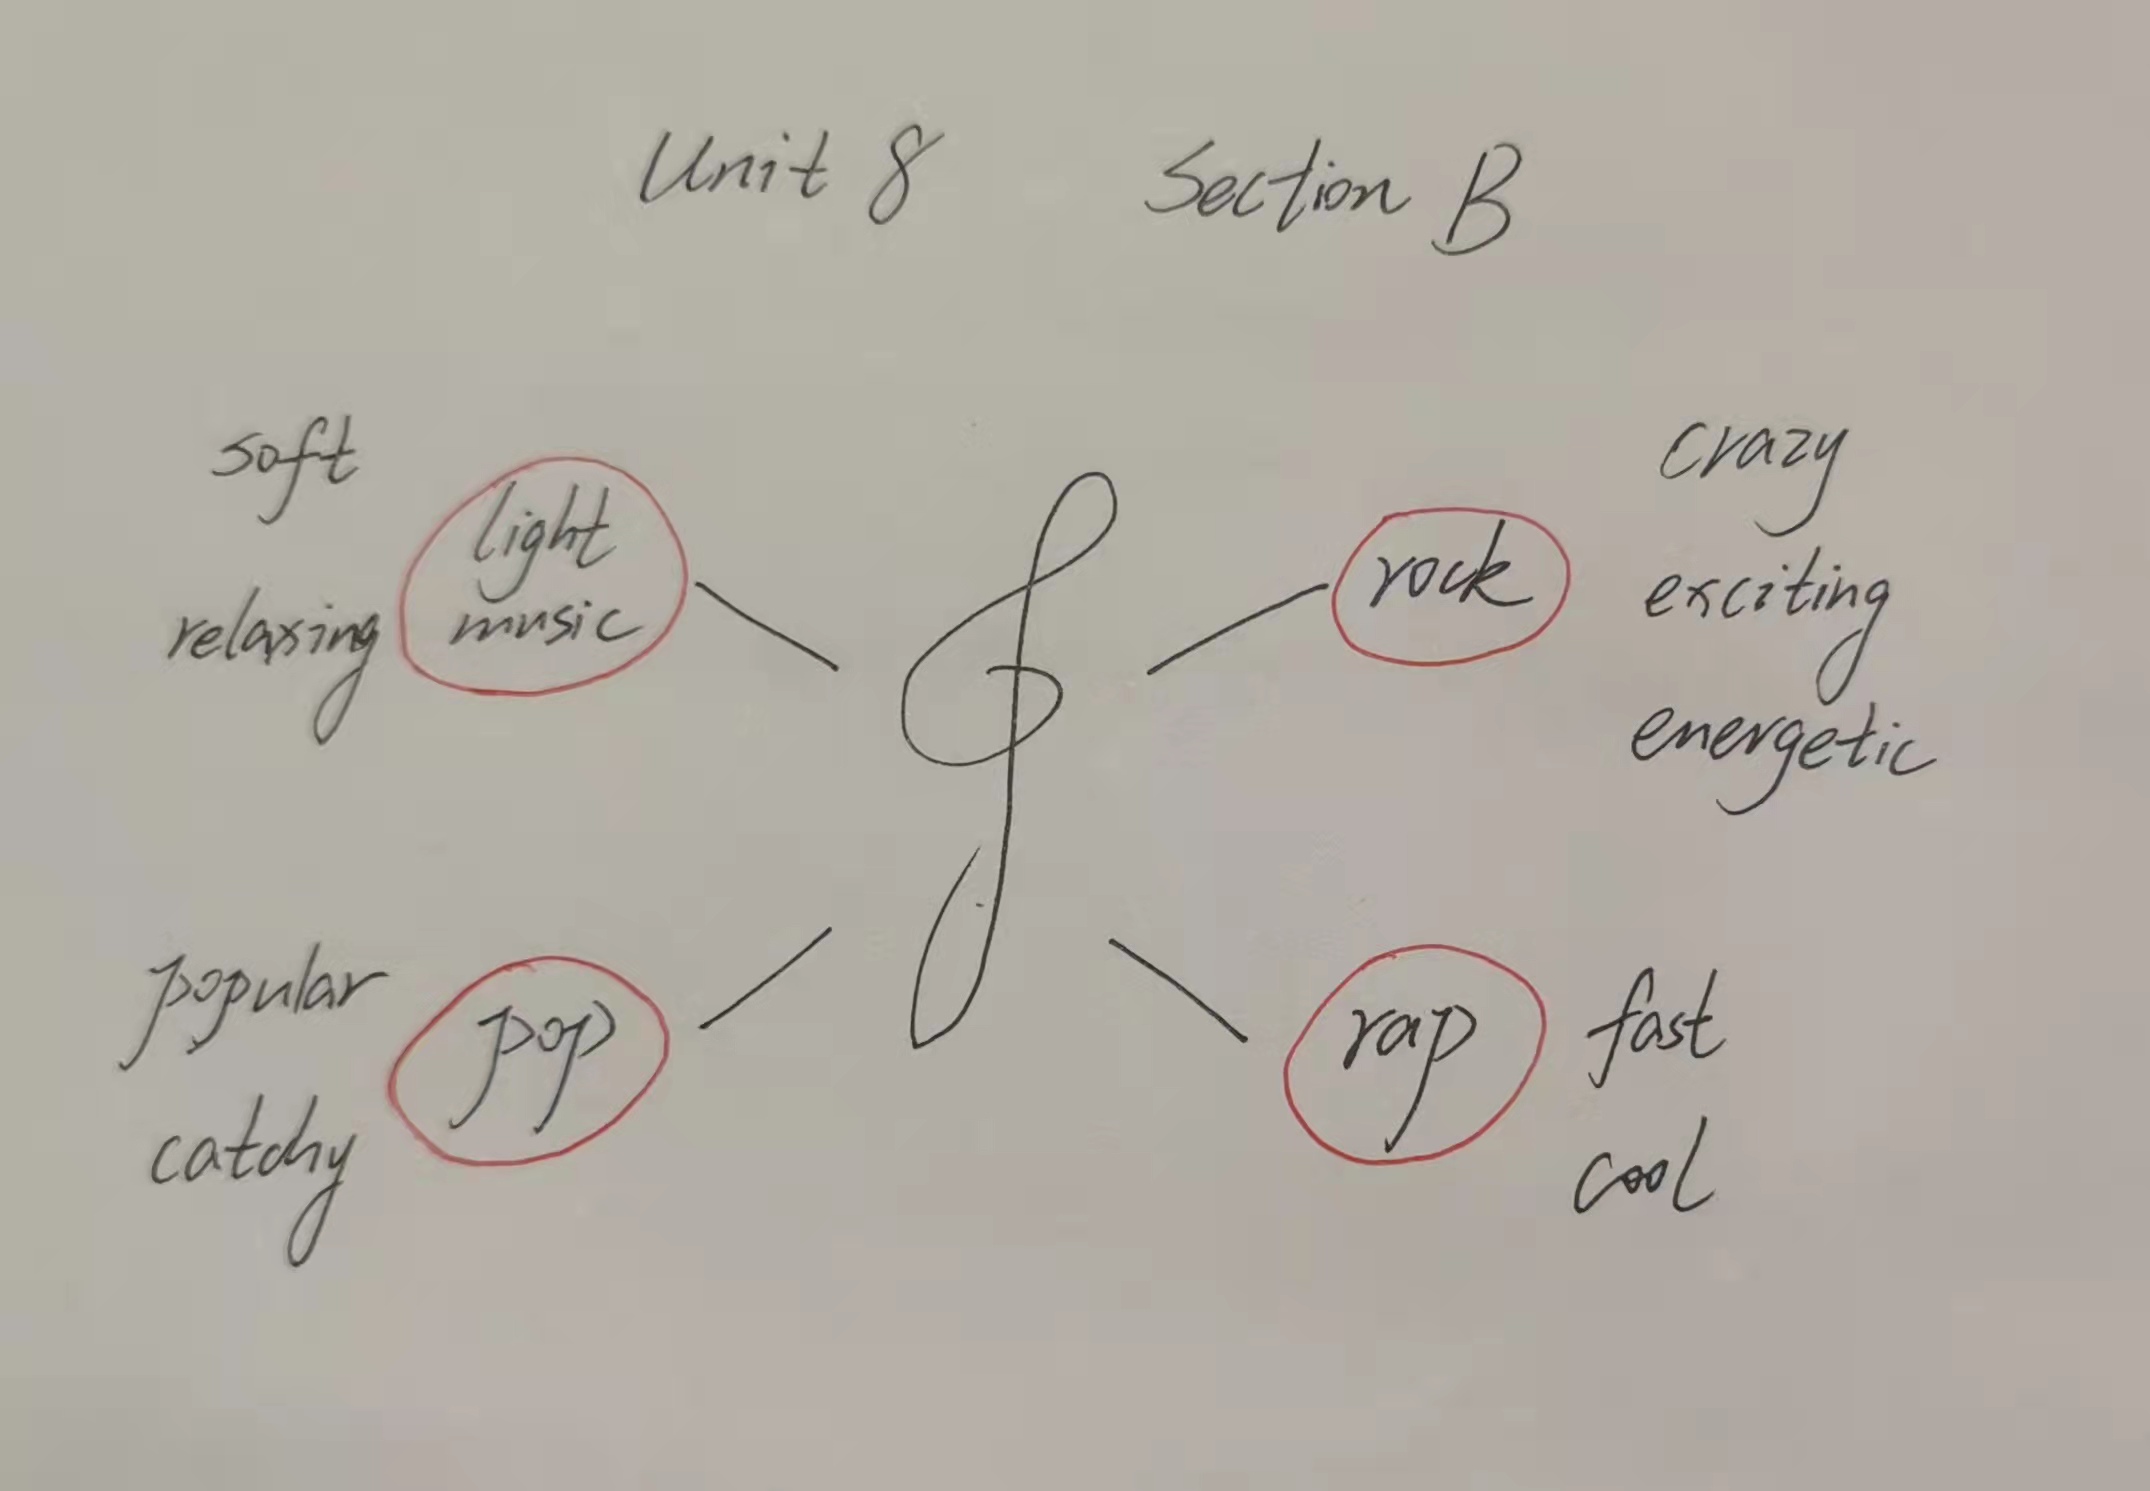 Unit 8 Section B
soft
relaxing
light
music
rock
crazy
exciting
energetic
popular
catchy
pop
rap
fast
cool